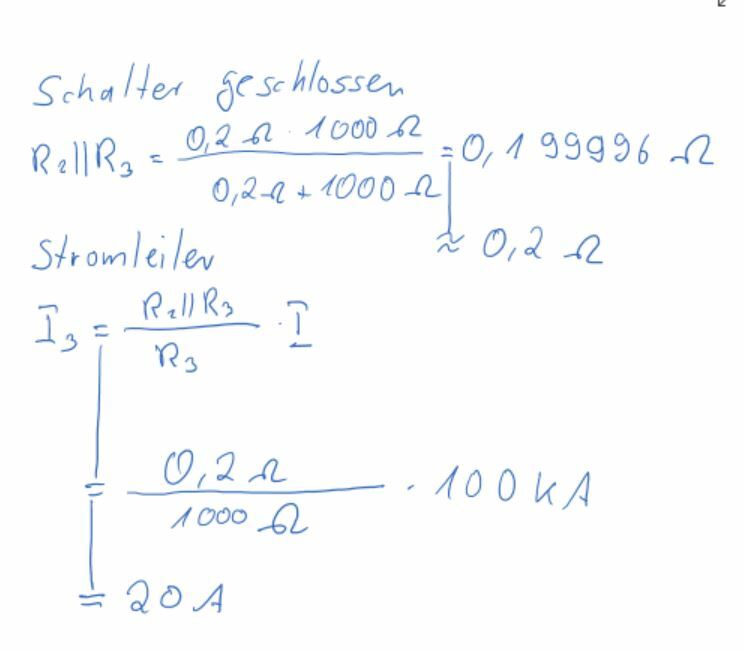 Schalter geschlossen
R2||R3 = 0,2 Ω · 1000 Ω / 0,2 Ω + 1000 Ω = 0,199996 Ω
≈ 0,2 Ω
Stromleiler
I3 = R2||R3 / R3 · I
= 0,2 Ω / 1000 Ω · 100 kA
= 20 A